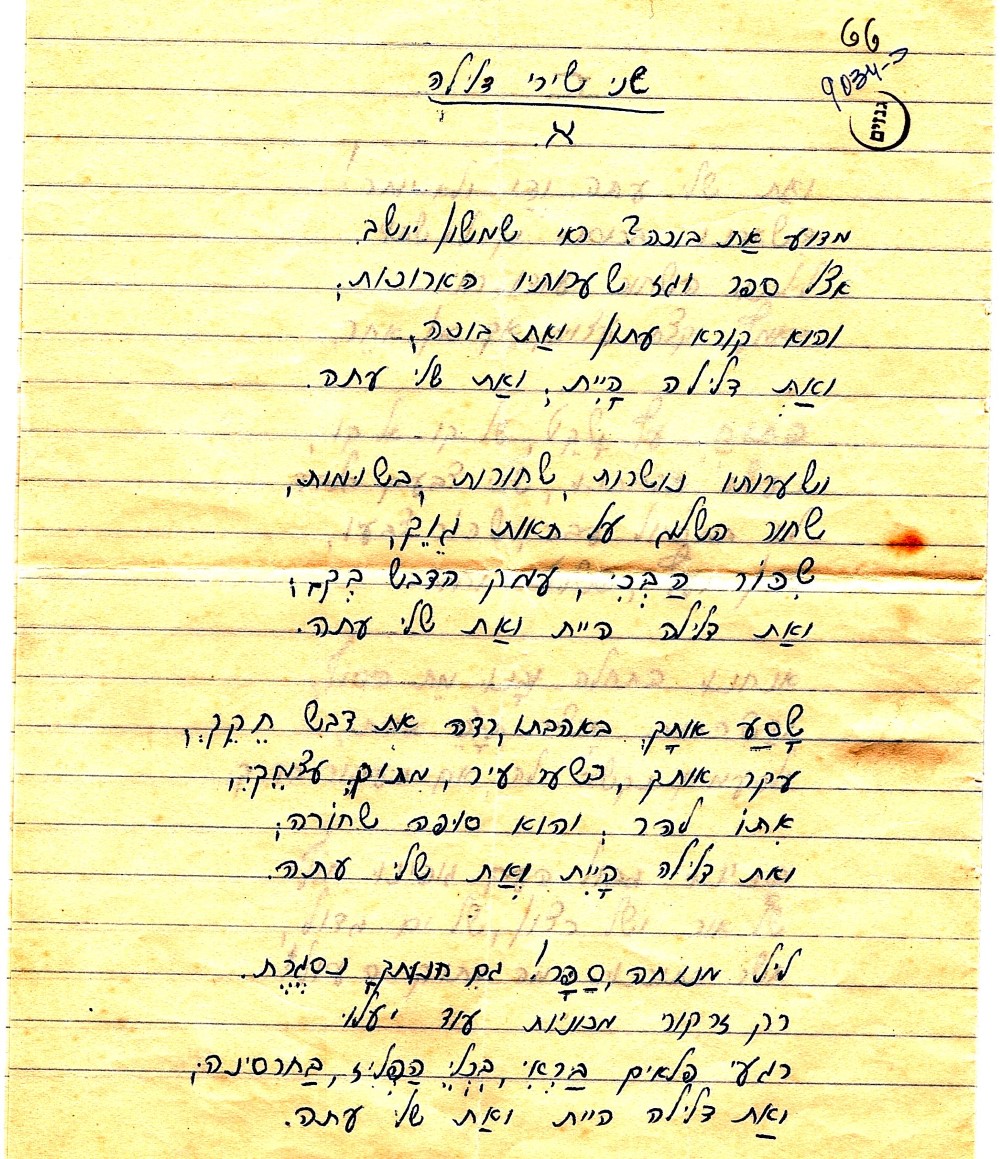 66
9034-כ
גנזים
שני שירי דלילה
א.
מדוע אַת בוכה? ראי שמשון יושב
אצל ספר וגוזז שערותיו הארוכות;
והוא קורא עתון ואַת בוכה,
ואַתְּ דלילה הָיִית, ואַת שלי עתה.
ושערותיו נושרות, שחורות, בשוממות,
שחור השלג על תאות גֵוֵךְ,
שִׁכּוֹר הַבְּכִי, עמוק הדבש
ואַת דלילה היית ואַת שלי עתה.
שָׁסַע אותָךְ באהבתו, רדה את דבש חֵקֵךְ,
עקר אותך, כשער עיר, מתוך עצמֵךְ,
אִתּוֹ להר, והוא סופה שחוֹרה;
ואת דלילה הָיִית וְאַת שלי עתה.
ליל מנוחה, סַפָּר! גם חנותךָ נסגֶרֶת.
רק זרקורי מכוניות עוד יעלו
רגעי פלאים בַּרְאִי, בִּכְלֵי הַפְּלִיז, בַּחרסינה;
ואַת דלילה היית ואַת שלי עתה.